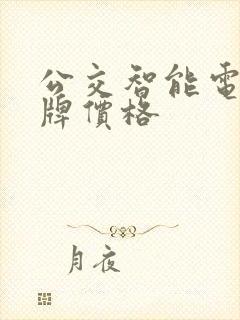 公交智能電
牌價格
月夜